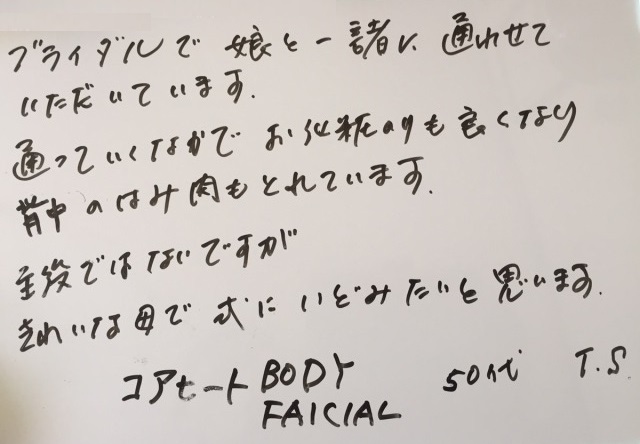 ブライダルで 娘と一諸に 通わせて
いただいています.
通っていくなかで お化粧のりも良くなり
背中のはみ肉もとれています.
主役ではないですが
きれいな母で 式に いどみたいと 思います.
コアセート BODY 50代 T.S
FAICIAL